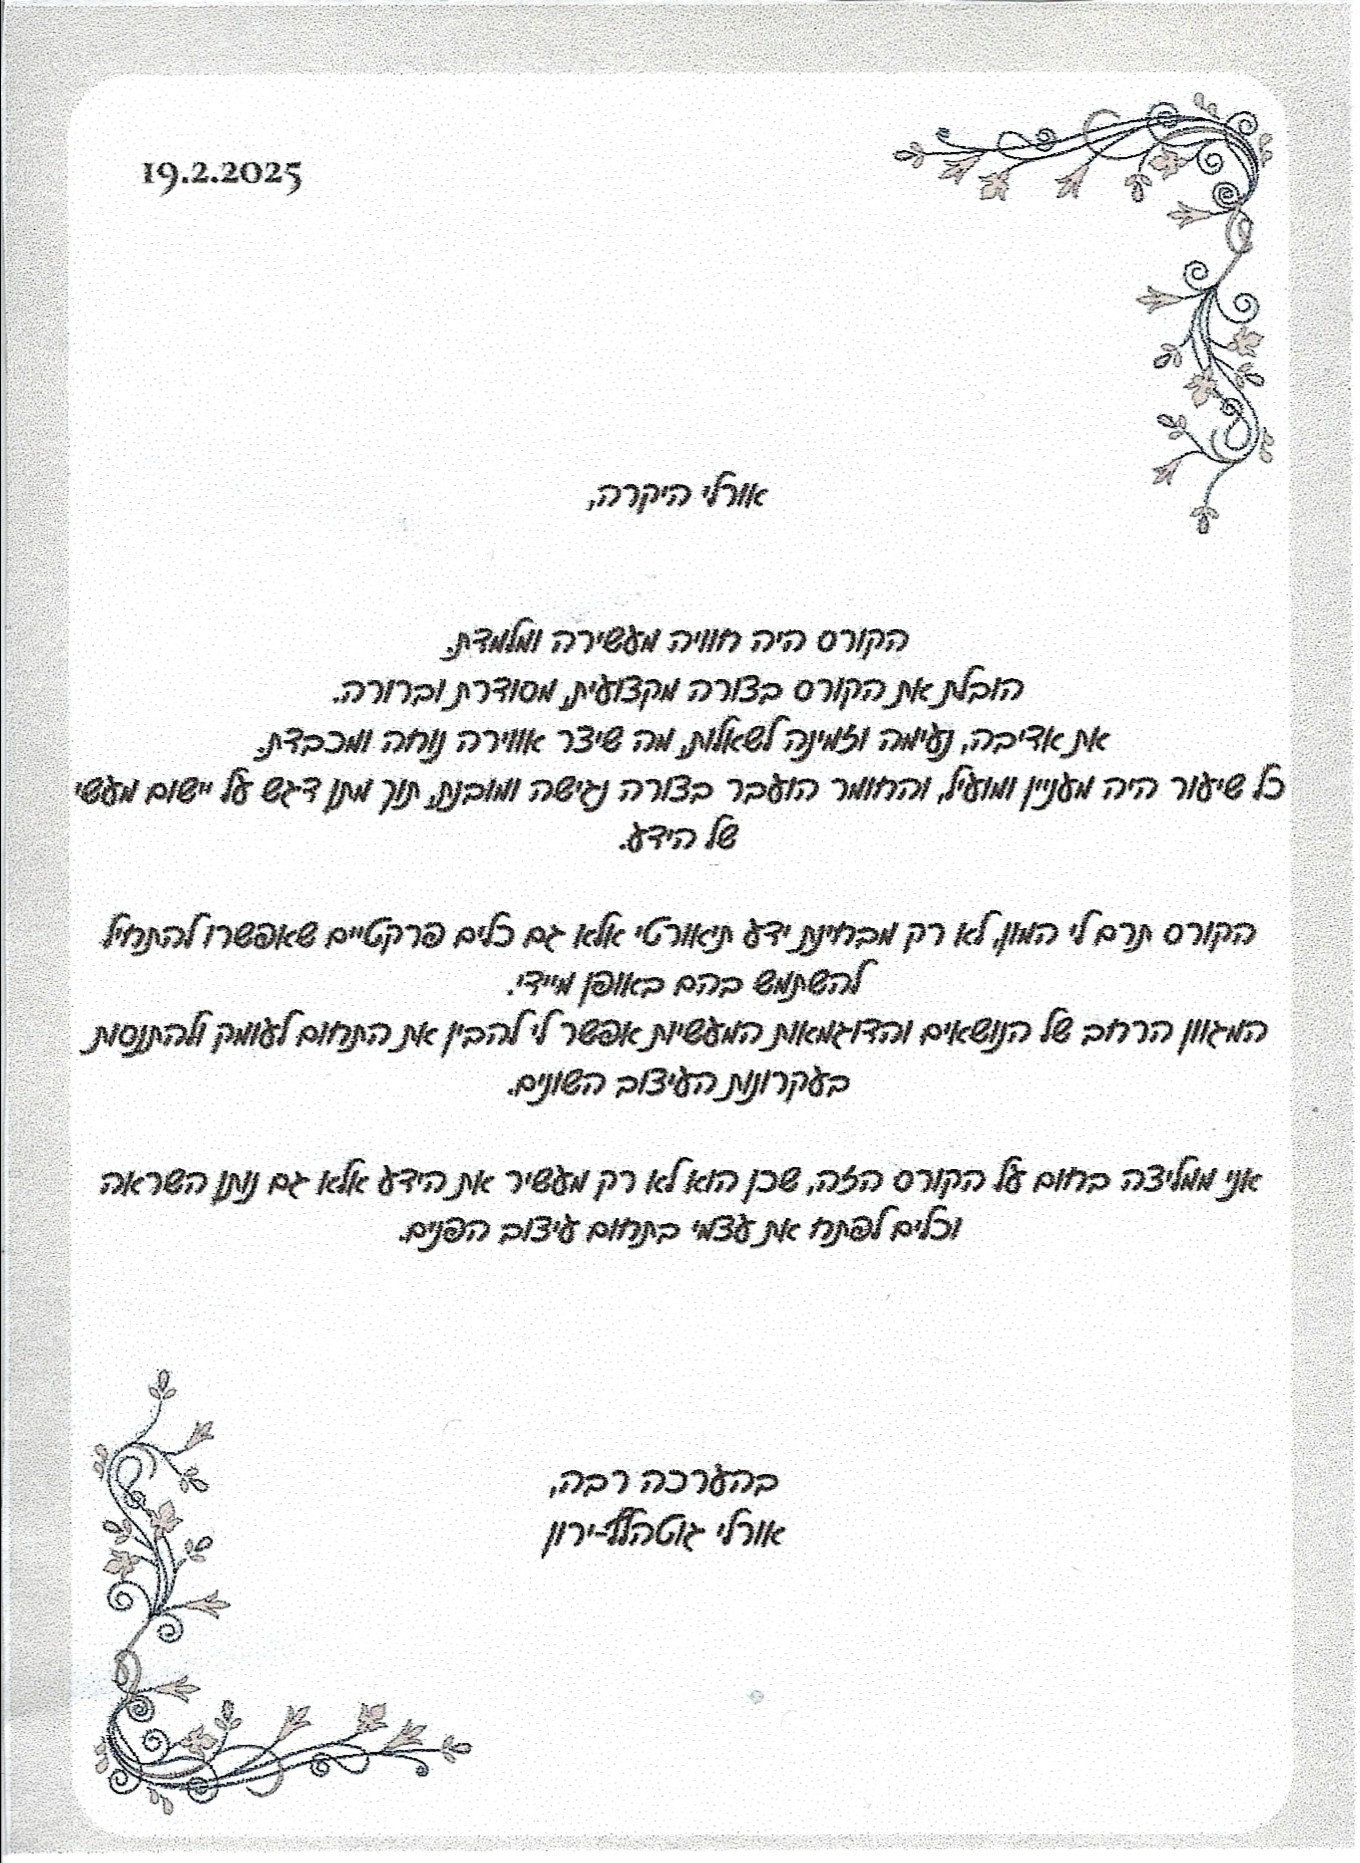 19.2.2025
אורלי היקרה,
הקורס היה חוויה מעשירה ומלמדת.
הובלת את הקורס בצורה מקצועית, מסודרת וברורה.
את אדיבה, נעימה וזמינה לשאלות, מה שיצר אווירה נוחה ומכבדת.
כל שיעור היה מעניין ומועיל, והחומר הועבר בצורה נגישה ומובנת, תוך מתן דגש על יישום מעשי
של הידע.
הקורס תרם לי המון, לא רק מבחינת ידע תיאורטי אלא גם כלים פרקטיים שאפשרו להתחיל
להשתמש בהם באופן מיידי.
המגוון הרחב של הנושאים והדוגמאות המעשיות אפשר לי להבין את התחום לעומק ולהתנסות
בעקרונות העיצוב השונים.
אני ממליצה בחום על הקורס הזה, שכן הוא לא רק מעשיר את הידע אלא גם נותן השראה
וכלים לפתח את עצמי בתחום עיצוב הפנים.
בהערכה רבה,
אורלי גוטהלף-ירון